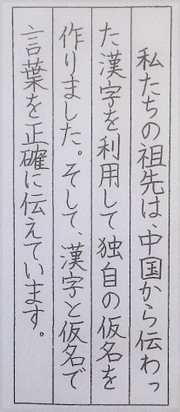 私たちの祖先は、中国から伝わっ
た漢字を利用して独自の仮名を
作りました。そして、漢字と仮名で
言葉を正確に伝えています。